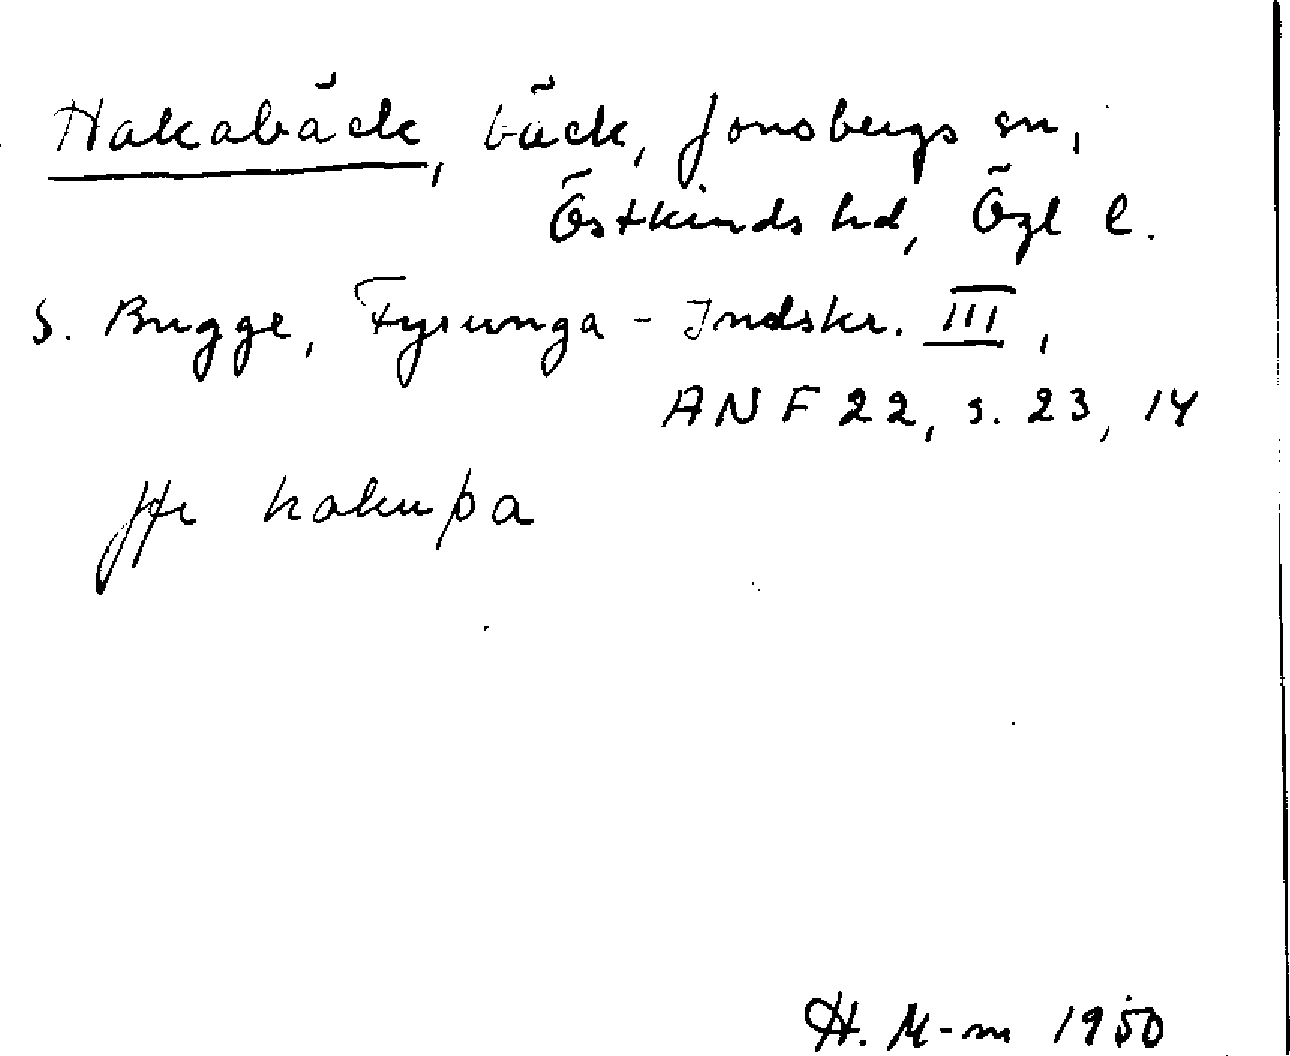 Hakabäck, bäck, Jonsbergs sn,
Östkinds hd, Ögl l.
S. Bugge, Fyrunga-Indskr. III,
ANF 22, s. 23, 14
Jfr hakuþa
H. M-m 1950